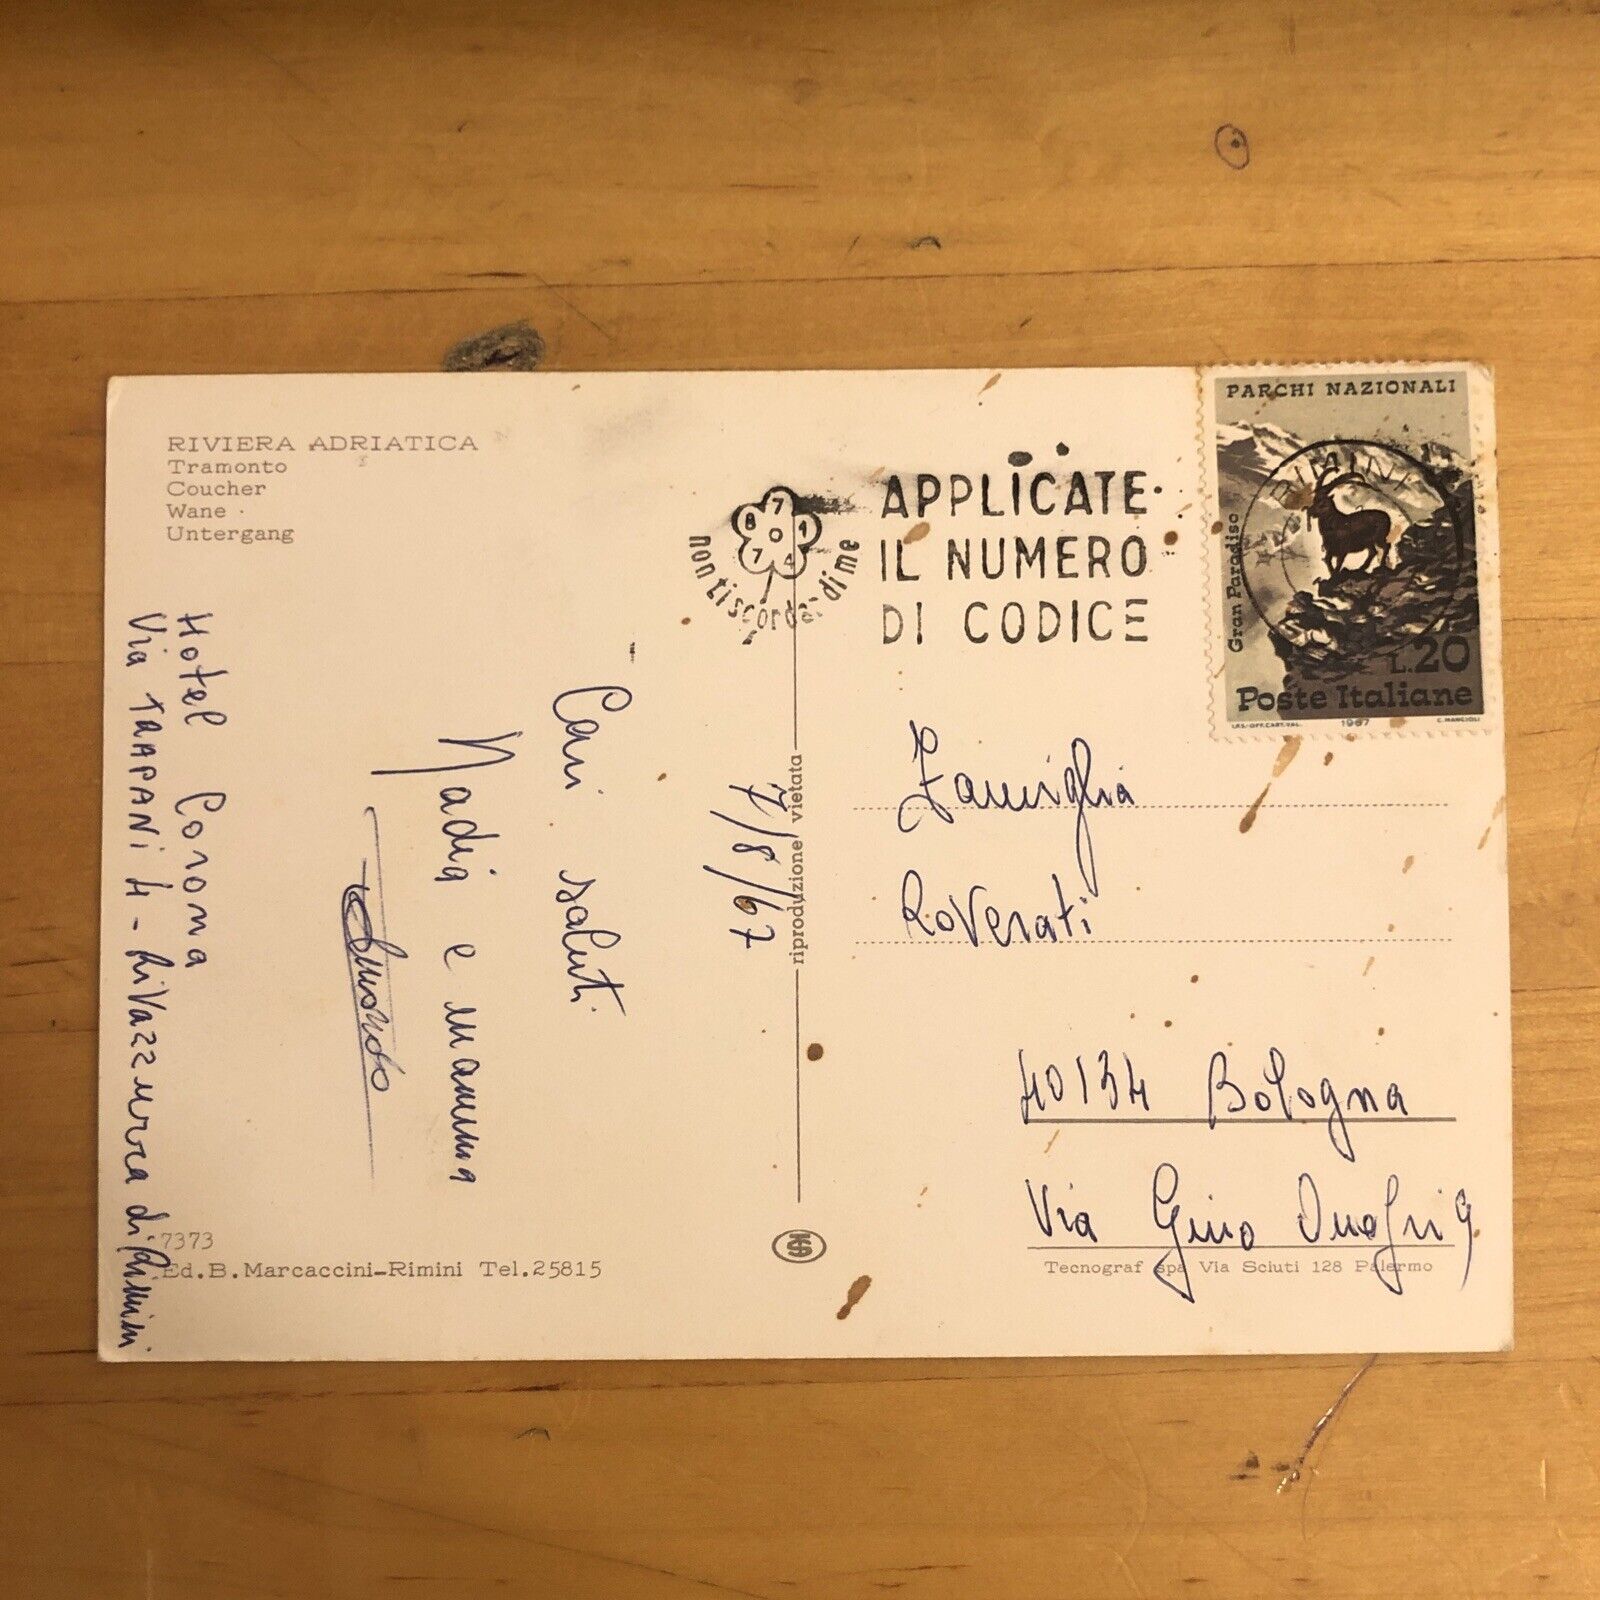 RIVIERA ADRIATICA
Tramonto
Coucher
Wane
Untergang
7/8/67
Cari saluti
Nadia e mamma
Hotel Corona
Via TRAPANI 4 - RiVazzurra di Rimini
7373
Ed. B. Marcaccini-Rimini Tel. 25815
riproduzione vietata
8 7 1 7 4 0
non ti scordar di me
APPLICATE
IL NUMERO
DI CODICE
PARCHI NAZIONALI
Gran Paradiso
RIMINI
L.20
Poste Italiane
I.P.S.-OFF.CART.VAL. 1967 C. MANCIOLI
Famiglia
RoVerati
40134 Bologna
Via Gino Onofri 9
Tecnograf spa Via Sciuti 128 Palermo